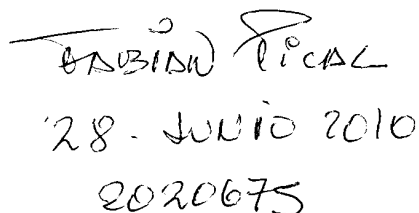 FABIAN PICAL
28. JUNIO 2010
2020675